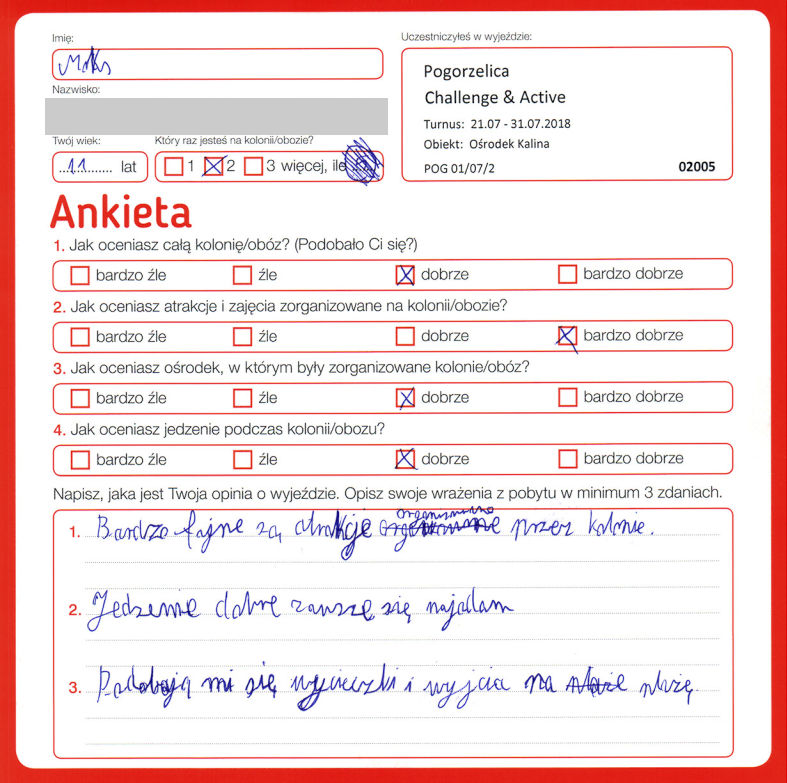 Imię:
Maks
Nazwisko:
Twój wiek:
..11....... lat
Który raz jesteś na kolonii/obozie?
1 2 3 więcej, ile
Uczestniczyłeś w wyjeździe:
Pogorzelica
Challenge & Active
Turnus: 21.07 - 31.07.2018
Obiekt: Ośrodek Kalina
POG 01/07/2 02005
Ankieta
1. Jak oceniasz całą kolonię/obóz? (Podobało Ci się?)
bardzo źle źle dobrze bardzo dobrze
2. Jak oceniasz atrakcje i zajęcia zorganizowane na kolonii/obozie?
bardzo źle źle dobrze bardzo dobrze
3. Jak oceniasz ośrodek, w którym były zorganizowane kolonie/obóz?
bardzo źle źle dobrze bardzo dobrze
4. Jak oceniasz jedzenie podczas kolonii/obozu?
bardzo źle źle dobrze bardzo dobrze
Napisz, jaka jest Twoja opinia o wyjeździe. Opisz swoje wrażenia z pobytu w minimum 3 zdaniach.
1. Bardzo fajne są atrakcje organizowane przez kolonie.
2. Jedzenie dobre zawszę się najadam
3. Podobają mi się wycieczki i wyjcia na plażę